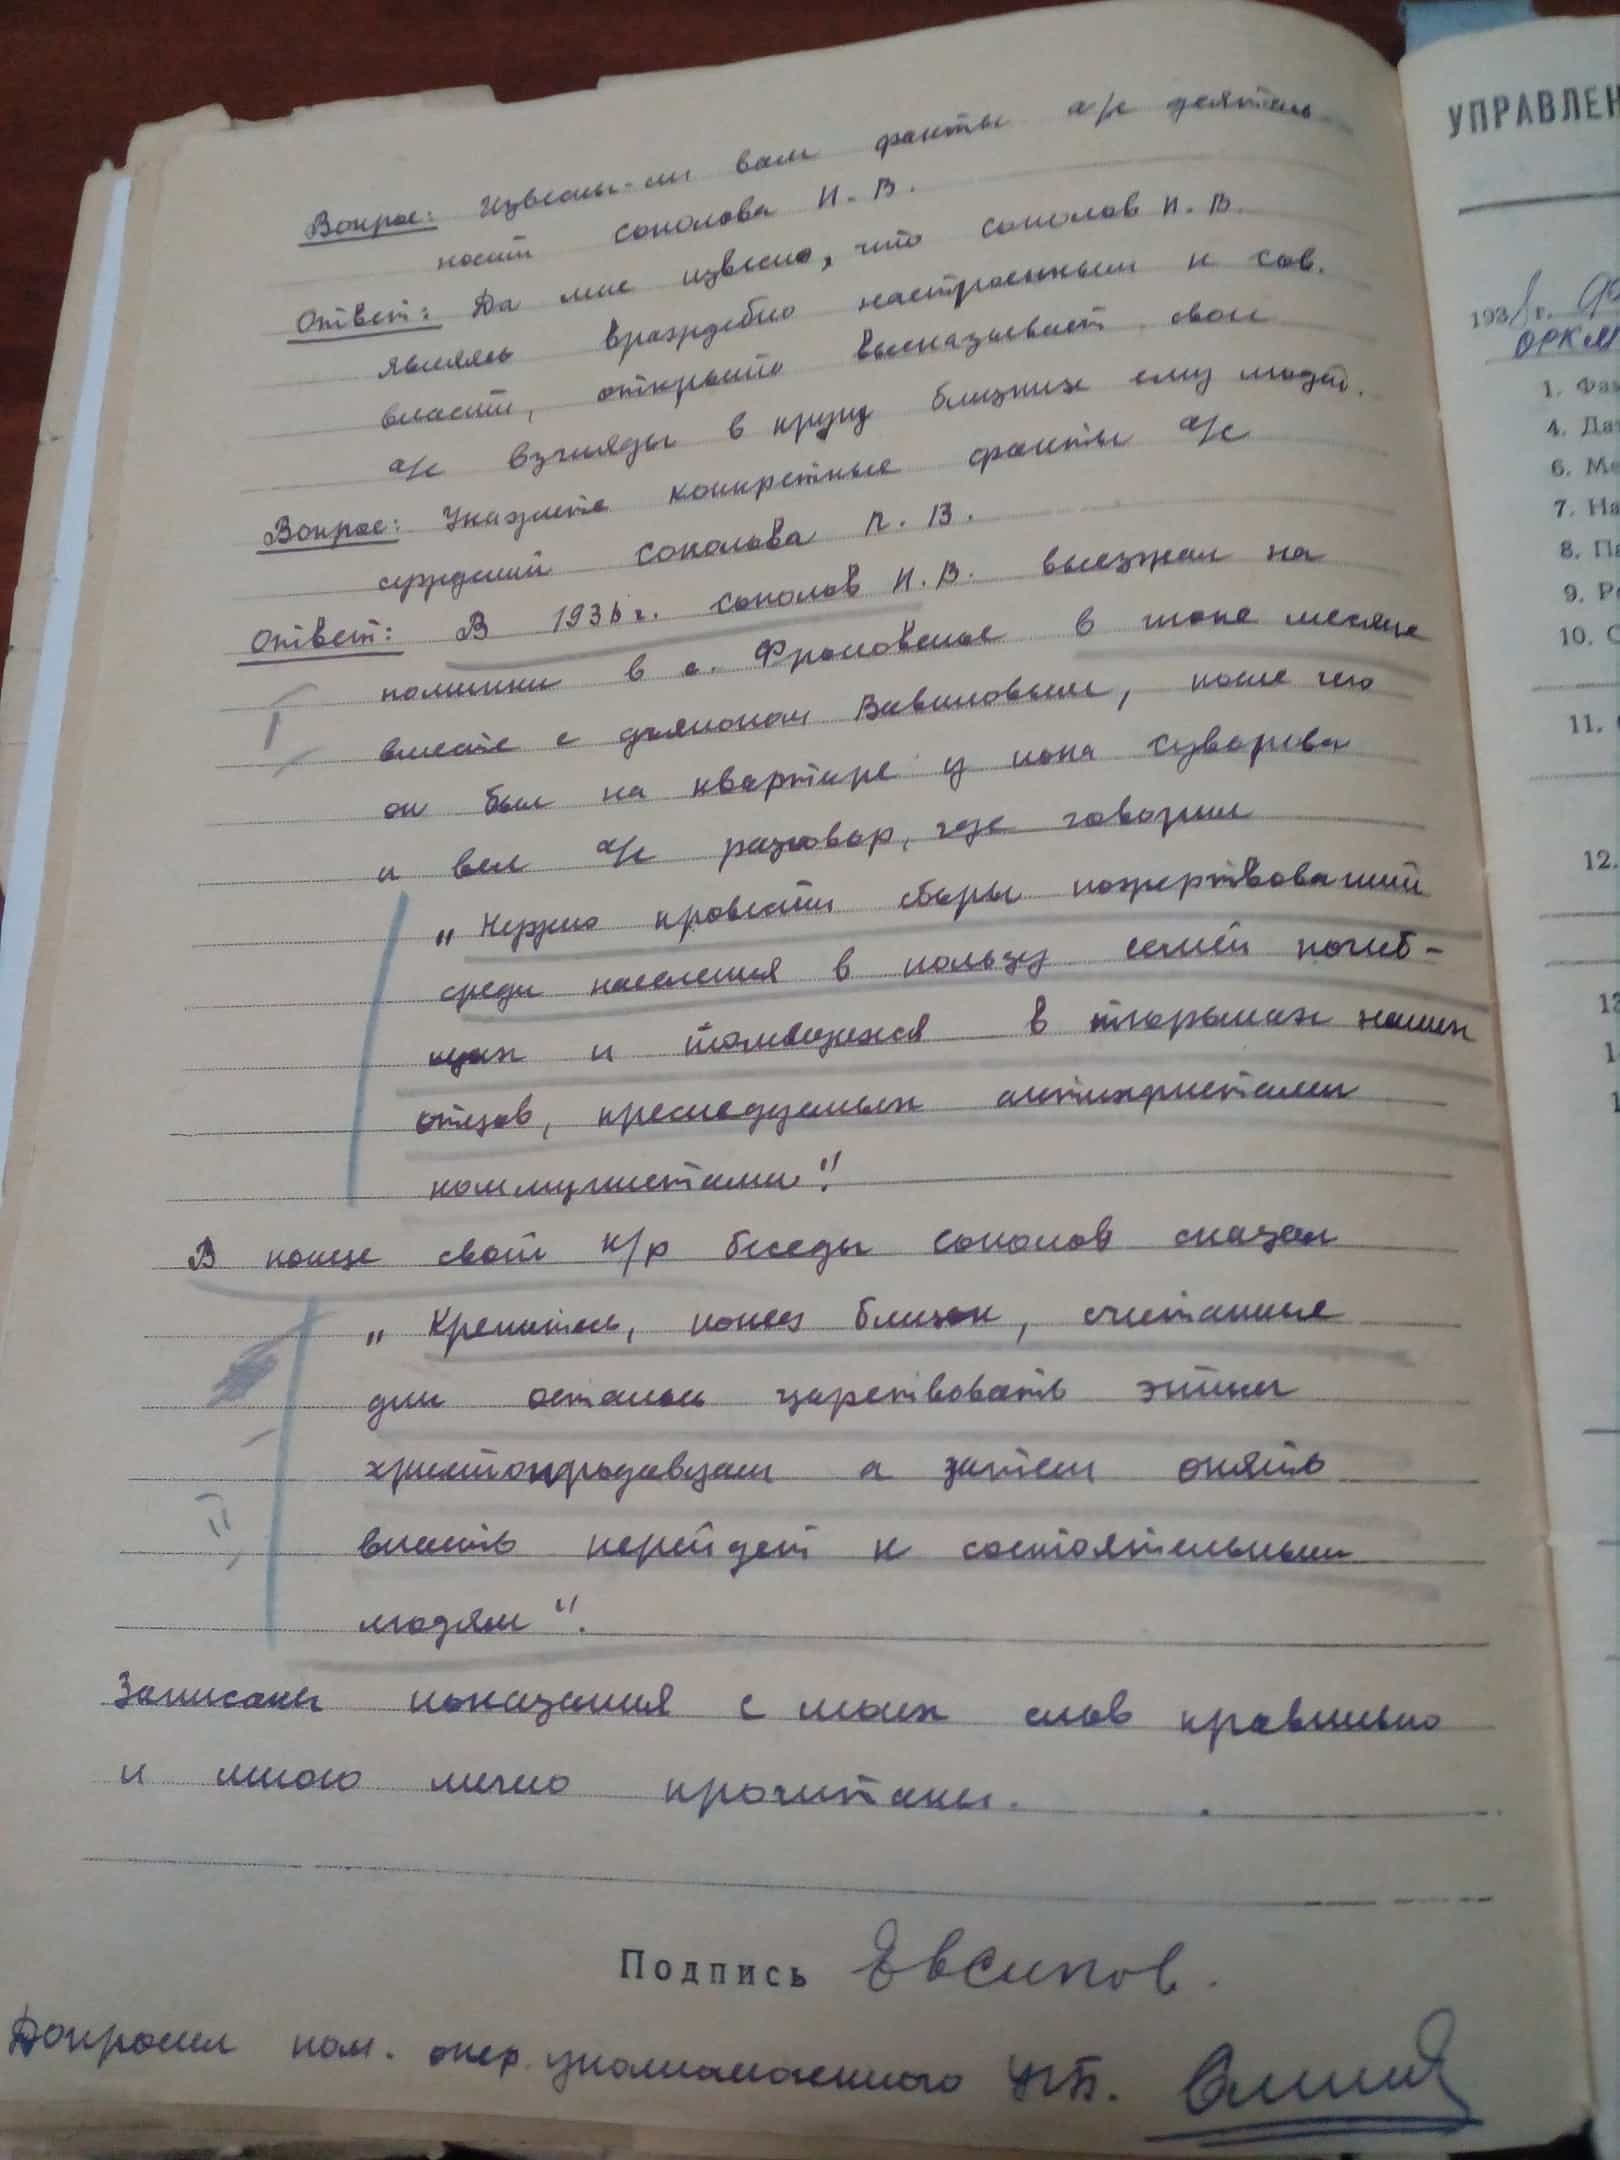 Вопрос: Извесны-ли вам факты а/с деятель-
ности Соколова И. В.
Ответ: Да мне извесно, что Соколов И. В.
являясь враждебно настроенным к сов.
власти, открыто высказывает свои
а/с взгляды в кругу близких ему людей.
Вопрос: Укажите конкретные факты а/с
суждений Соколова И. В.
Ответ: В 1936 г. Соколов И. В. выезжал на
поминки в с. Фроловское в июне месяце
вместе с дьяконом Вавиловым, после чего
он был на квартире у попа Суворова
и вел а/с разговор, где говорил
„Нужно провести сборы пожертвований
среди населения в пользу семей погиб-
ших и томящихся в тюрьмах наших
отцов, преследуемых антихристами
коммунистами".
В конце своей к/р беседы Соколов сказал
„Крепитесь, конец близок, считанные
дни осталось царствовать этим
христопродавцам а затем опять
власть перейдет к состоятельным
людям".
Записаны показания с моих слов правильно
и мною лично прочитаны.
Подпись Евсипов.
Допросил пом. опер. уполномоченного УГБ.
УПРАВЛЕН
193 г.
ОРКМ
1. Фа
4. Да
6. Ме
7. На
8. Па
9. Р
10. С
11.
12.
13
1
1